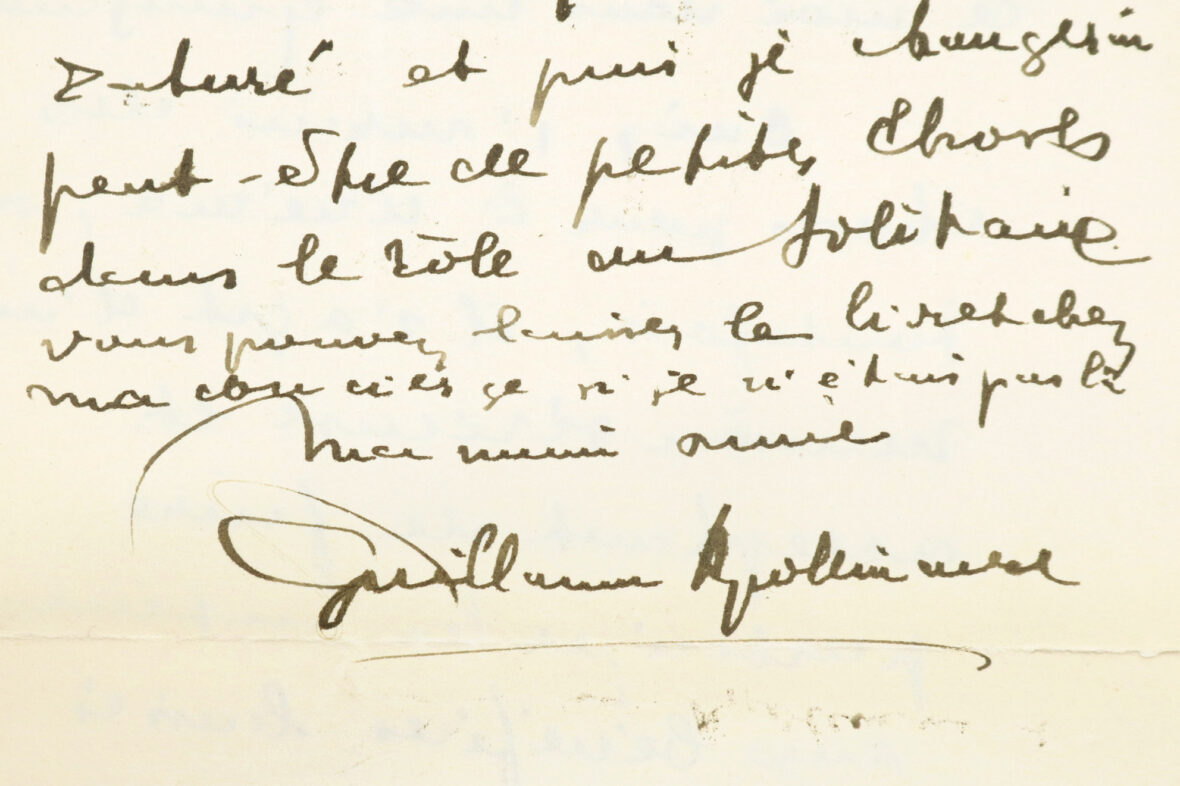 et puis je changerai
peut-être de petites choses
dans le rôle du solitaire
vous pouvez laisser le livret chez
ma concierge si je n'étais pas là
Ma main amie
Guillaume Apollinaire